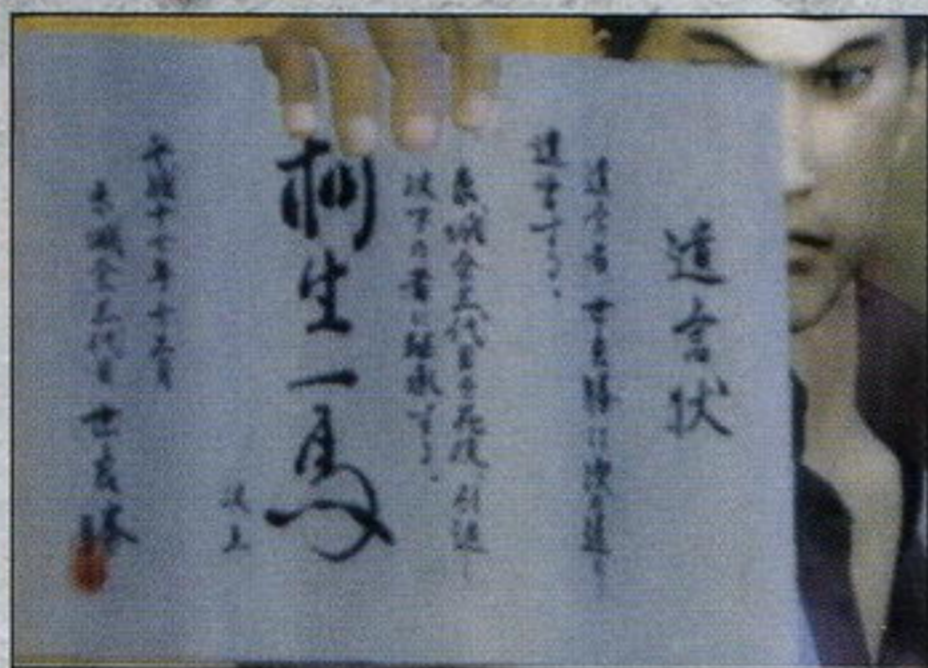 遺言状
遺言者 世良勝は次の様に
遺言する。
東城会三代目の死後
以下の者に
桐生一馬
以上
平成十七年十二月
東城会三代目 世良勝